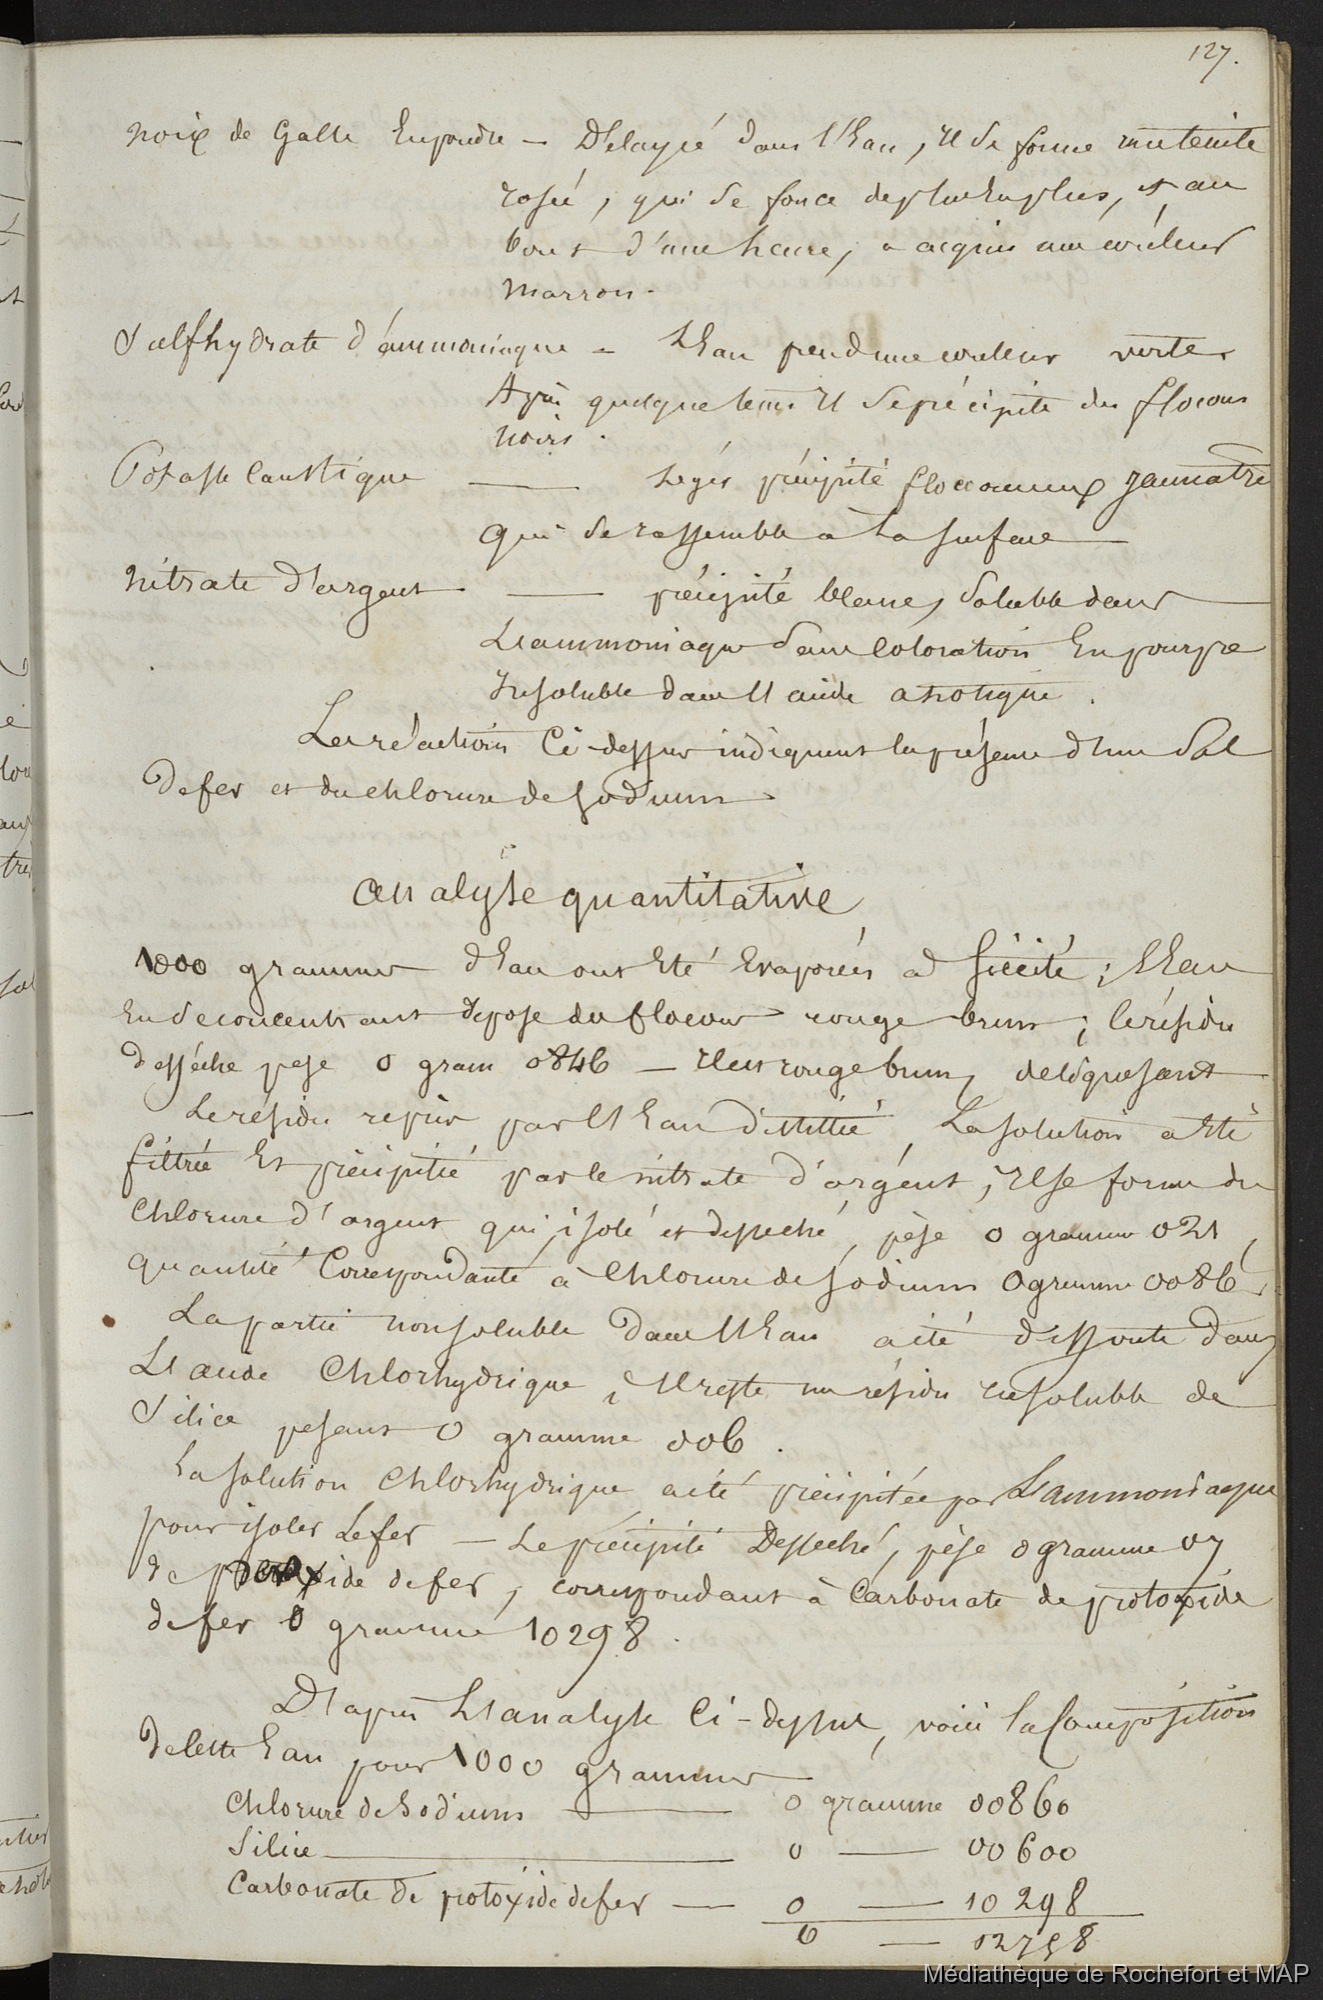 127.
Noix de Galle En poudre — Délayée dans l'Eau, Il se forme une teinte
rosée, qui se fonce de plus en plus, et au
bout d'une heure, a acquis une couleur
marron.
Sulfhydrate d'ammoniaque — L'Eau prend une couleur verte
Après quelque tems Il se précipite des flocons
noirs.
Potasse Caustique — Léger précipité floconneux Jaunatre
qui se rassemble à la surface —
Nitrate d'argent — précipité blanc, soluble dans
L'ammoniaque Coloration En pourpre
Insoluble dans l'acide azotique.
Les réactions Ci-dessus indiquent la présence d'un Sel
de fer et du chlorure de sodium
Analyse quantitative
1000 grammes d'Eau ont Eté Evaporés à Siccité; l'Eau
En se concentrant dépose des flocons rouge brun; le résidu
desséché pèse 0 gram 0846 — Il est rouge brun, deliquesant
Le résidu repris par l'Eau distillée, La solution a Eté
filtrée Et précipitée par le nitrate d'argent, Il se forme du
Chlorure d'argent qui, isolé et desseché, pèse 0 gramme 021,
quantité Correspondante à Chlorure de sodium 0 gramme 0086
La partie non soluble dans l'Eau a été dissoute dans
L'acide Chlorhydrique, Il reste un résidu insoluble de
Silice pesant 0 gramme 006.
La solution Chlorhydrique a été précipitée par L'ammoniaque
pour isoler Le fer — Le précipité Desseché, pèse 0 gramme 07
de peroxide de fer, correspondant à Carbonate de protoxide
de fer 0 gramme 10298.
D'après L'analyse Ci-dessus, voici la Composition
de Cette Eau pour 1000 grammes
Chlorure de Sodium — 0 gramme 00860
Silice — 0 — 00600
Carbonate de protoxide de fer — 0 — 10298
0 — 12758
Médiathèque de Rochefort et MAP